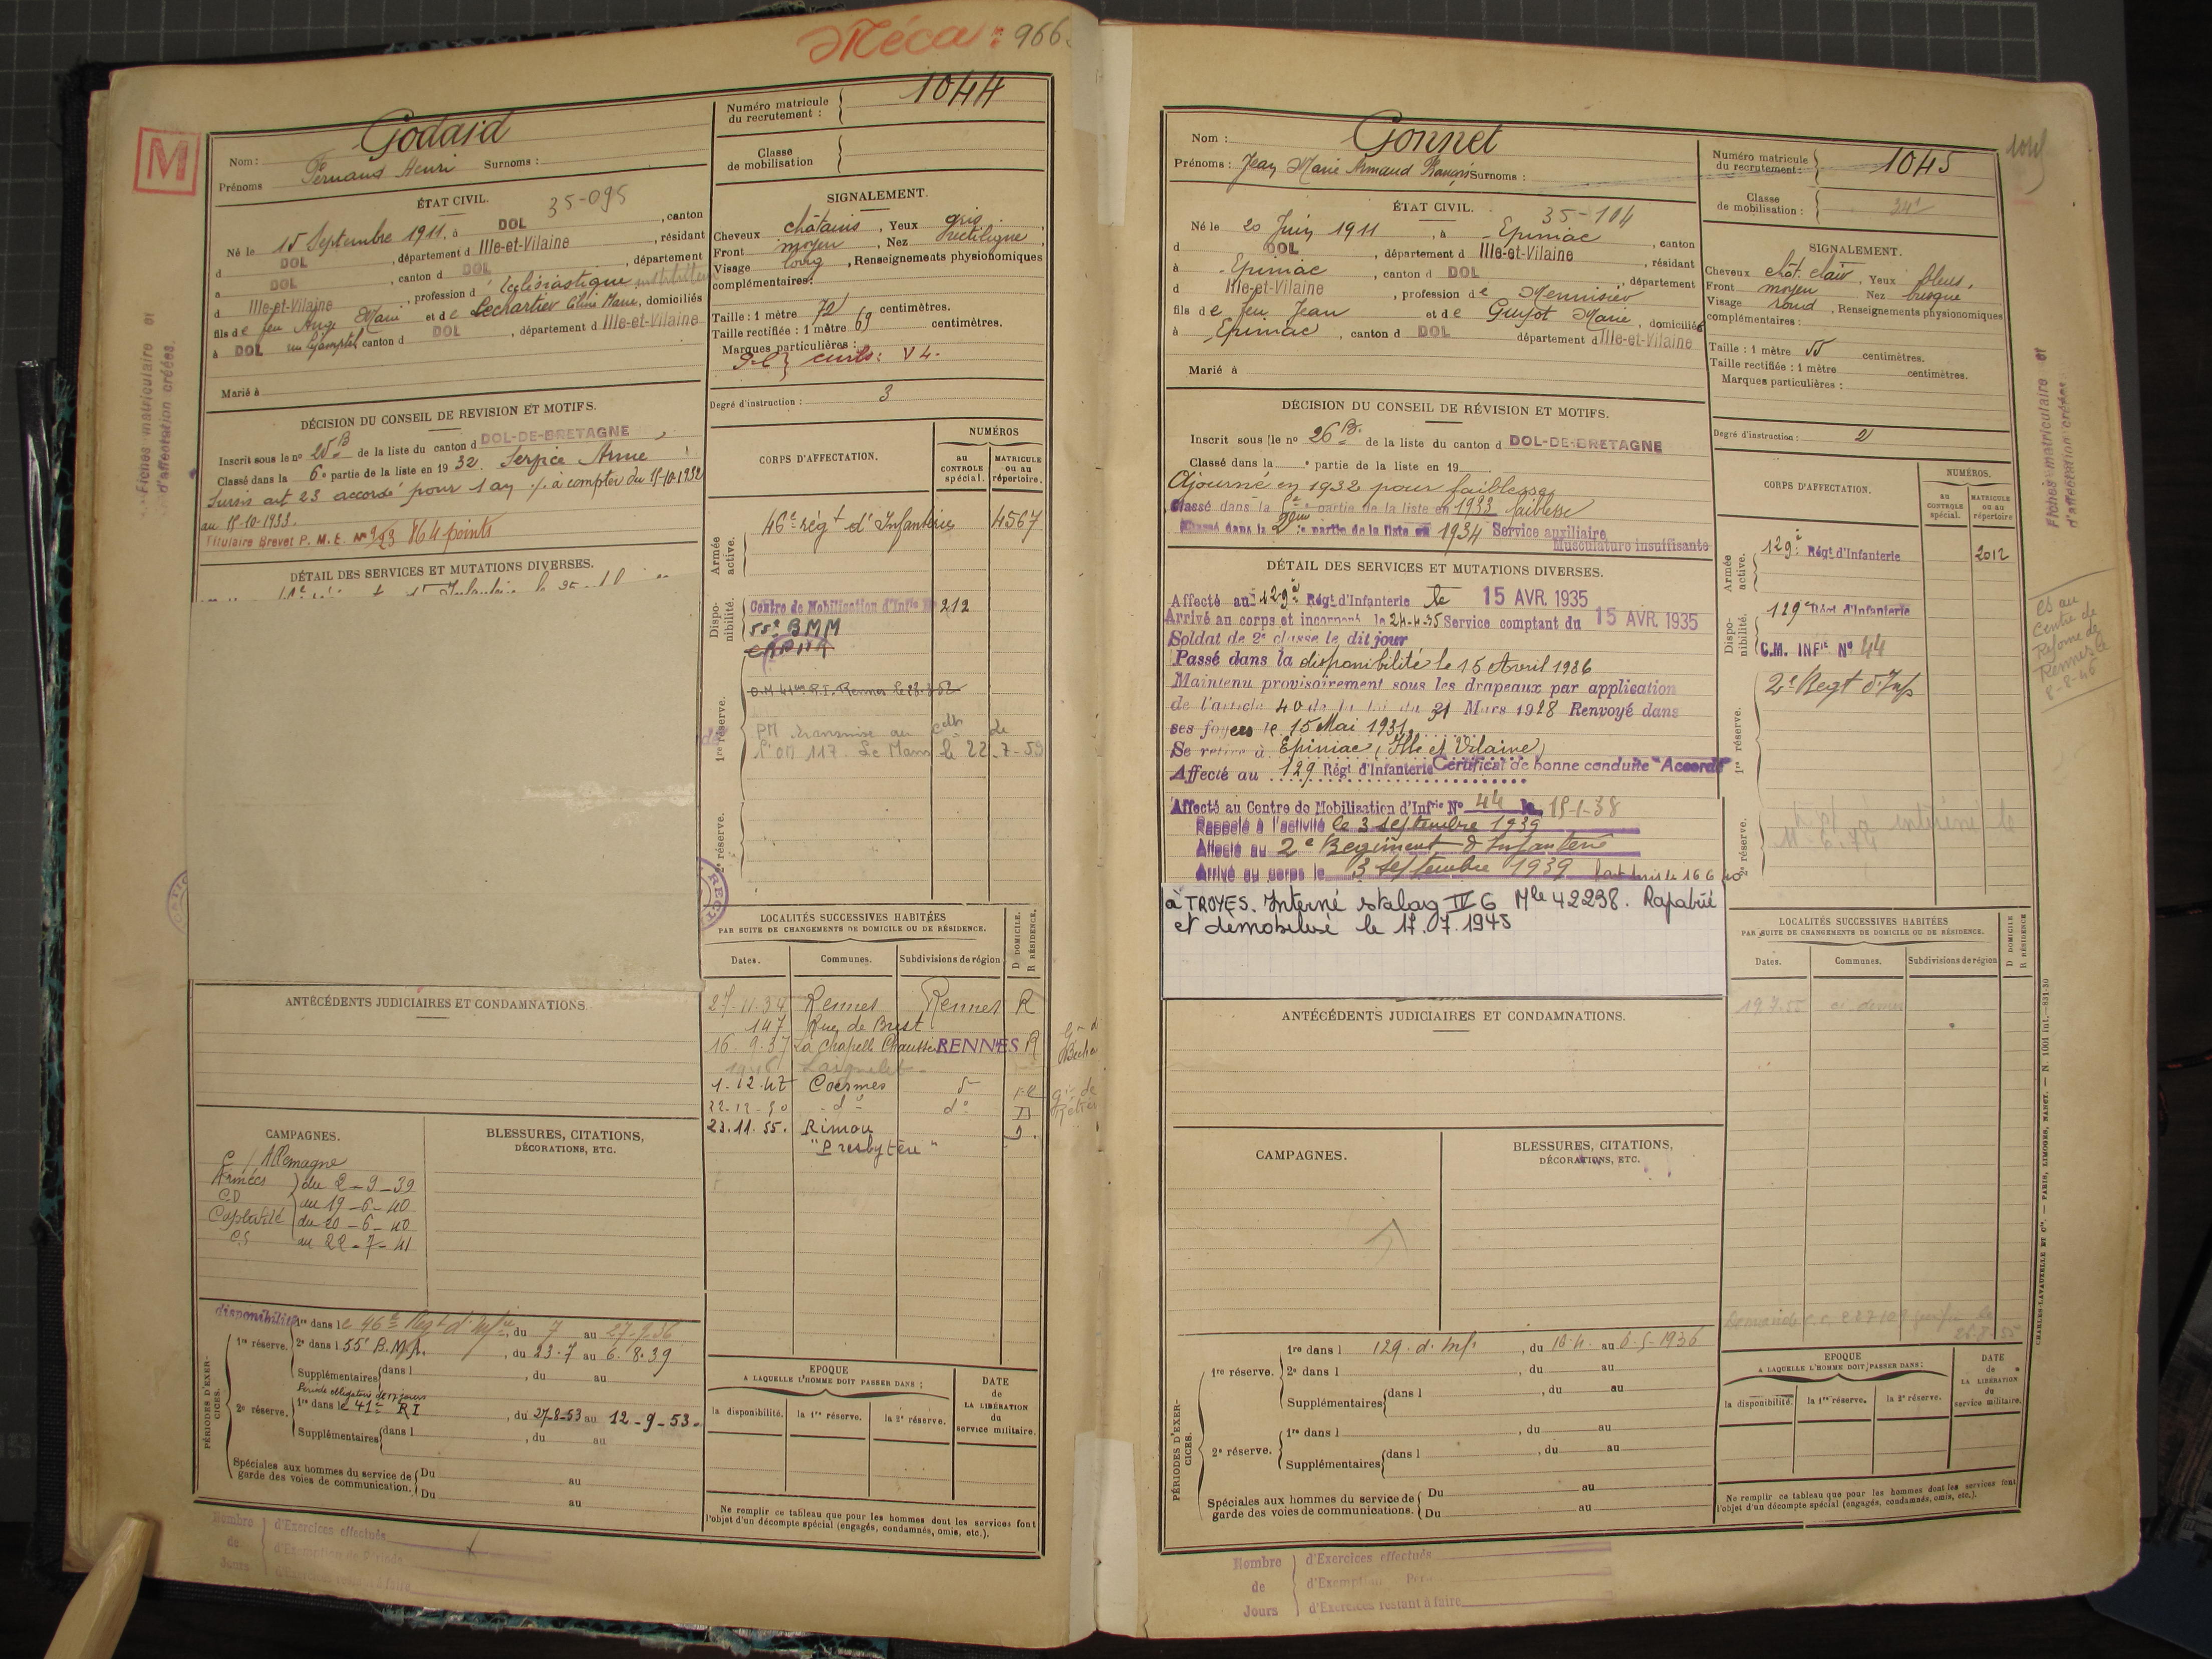 Méca : 966
M
Fiches matriculaire et
d'affectation créées.
Nom : Godard
Prénoms Fernand Henri Surnoms :
Numéro matricule
du recrutement : 1044
Classe
de mobilisation
ÉTAT CIVIL. 35-095
Né le 15 Septembre 1911, à DOL, canton
d DOL, département d Ille-et-Vilaine, résidant
à DOL, canton d DOL, département
d Ille-et-Vilaine, profession d Ecclésiastique
fils de feu Ange Marie et de Lechartier Céline Marie, domiciliés
à DOL canton d DOL, département d Ille-et-Vilaine
Marié à
SIGNALEMENT.
Cheveux châtains, Yeux gris,
Front moyen, Nez rectiligne,
Visage long, Renseignements physionomiques
complémentaires:
Taille : 1 mètre 72 centimètres.
Taille rectifiée : 1 mètre 69 centimètres.
Marques particulières :
Degré d'instruction : 3
DÉCISION DU CONSEIL DE REVISION ET MOTIFS.
Inscrit sous le no 25 B de la liste du canton d DOL-DE-BRETAGNE
Classé dans la 6e partie de la liste en 1932. Service Armé
Sursis art 23 accordé pour 1 an à compter du 15-10-1932
au 15-10-1933.
Titulaire Brevet P. M. E. No 923 864 points
DÉTAIL DES SERVICES ET MUTATIONS DIVERSES.
CORPS D'AFFECTATION.
NUMÉROS
au
CONTROLE
spécial.
MATRICULE
ou au
répertoire.
Armée
active.
46e régt d'Infanterie 4567
Dispo-
nibilité.
Centre de Mobilisation d'Infie No 212
55e BMM
1re réserve.
C.M. 41eme R.I. Rennes le 23.3.52
PM transmise au de
l'OM 117. Le Mans le 22-7-53
2e réserve.
LOCALITÉS SUCCESSIVES HABITÉES
PAR SUITE DE CHANGEMENTS DE DOMICILE OU DE RÉSIDENCE.
D DOMICILE.
R RÉSIDENCE.
Dates. Communes. Subdivisions de région
27-11-34 Rennes Rennes R
147 Rue de Brest
16.9.37 La Chapelle Chaussée RENNES R
1-12-47 Coësmes
22-12-50 do do D
23.11.55. Rimou D.
"Presbytère"
ANTÉCÉDENTS JUDICIAIRES ET CONDAMNATIONS.
CAMPAGNES.
C/ Allemagne
Armées du 2-9-39
CD au 19-6-40
Captivité du 20-6-40
CS au 22-7-41
BLESSURES, CITATIONS,
DÉCORATIONS, ETC.
PÉRIODES D'EXER-
CICES.
disponibilité
1re réserve. 1re dans le 46e Regt d'Infie, du 7 au 27-9-36
2e dans l 55e B.M.A., du 23-7 au 6.8.39
Supplémentaires dans l , du au
Période obligatoire de 17 jours
2e réserve. 1re dans le 41e RI, du 27-8-53 au 12-9-53
Supplémentaires dans l , du au
Spéciales aux hommes du service de
garde des voies de communication. Du au
Du au
EPOQUE
A LAQUELLE L'HOMME DOIT PASSER DANS :
la disponibilité. la 1re réserve. la 2e réserve.
DATE
de
LA LIBÉRATION
du
service militaire.
Ne remplir ce tableau que pour les hommes dont les services font
l'objet d'un décompte spécial (engagés, condamnés, omis, etc.).
Nombre
de
Jours
d'Exercices effectués
d'Exemption de Période
d'Exercices restant à faire
Nom : Gonnet
Prénoms : Jean Marie Armand François Surnoms :
Numéro matricule
du recrutement : 1045
Classe
de mobilisation :
ÉTAT CIVIL. 35-104
Né le 20 Juin 1911, à Epiniac, canton
d DOL, département d Ille-et-Vilaine, résidant
à Epiniac, canton d DOL, département
d Ille-et-Vilaine, profession de Menuisier
fils de feu Jean et de Guyot Marie, domiciliés
à Epiniac, canton d DOL département d Ille-et-Vilaine
Marié à
SIGNALEMENT.
Cheveux chât. clair, Yeux bleus,
Front moyen Nez busqué
Visage rond, Renseignements physionomiques
complémentaires :
Taille : 1 mètre 55 centimètres.
Taille rectifiée : 1 mètre centimètres.
Marques particulières :
Degré d'instruction : 2
DÉCISION DU CONSEIL DE RÉVISION ET MOTIFS.
Inscrit sous le no 26 B. de la liste du canton d DOL-DE-BRETAGNE
Classé dans la e partie de la liste en 19
Ajourné en 1932 pour faiblesse
Classé dans la partie de la liste en 1933 faiblesse
Classé dans la 2eme partie de la liste en 1934 Service auxiliaire
Musculature insuffisante
DÉTAIL DES SERVICES ET MUTATIONS DIVERSES.
Affecté au 129e Régt d'Infanterie le 15 AVR. 1935
Arrivé au corps et incorporé le 24-4-35 Service comptant du 15 AVR. 1935
Soldat de 2e classe le dit jour
Passé dans la disponibilité le 15 Avril 1936
Maintenu provisoirement sous les drapeaux par application
de l'article 40 de la loi du 31 Mars 1928 Renvoyé dans
ses foyers le 15 Mai 1936
Se retire à Epiniac (Ille et Vilaine)
Affecté au 129 Régt d'Infanterie Certificat de bonne conduite "Accordé"
Affecté au Centre de Mobilisation d'Infrie No 44 le 15-1-38
Rappelé à l'activité le 3 septembre 1939
Affecté au 2e Regiment d'Infanterie
Arrivé au corps le 3 septembre 1939
à TROYES. Interné stalag IV G Mle 42298. Rapatrié
et démobilisé le 17.07.1945
CORPS D'AFFECTATION.
NUMÉROS.
au
CONTROLE
spécial.
MATRICULE
ou au
répertoire
Armée
active.
129e Régt d'Infanterie 2012
Dispo-
nibilité.
129e Régt d'Infanterie
C.M. INFie No 44
1re réserve.
2e Regt d'Inf
2e réserve.
Centre de
Réforme de
Rennes le
8-8-45
Fiches matriculaire et
d'affectation créées
LOCALITÉS SUCCESSIVES HABITÉES
PAR SUITE DE CHANGEMENTS DE DOMICILE OU DE RÉSIDENCE.
D DOMICILE
R RÉSIDENCE
Dates. Communes. Subdivisions de région
19.7.55
ANTÉCÉDENTS JUDICIAIRES ET CONDAMNATIONS.
CAMPAGNES.
BLESSURES, CITATIONS,
DÉCORATIONS, ETC.
PÉRIODES D'EXER-
CICES.
1re réserve. 1re dans l 129. d'Inf., du 16-4 au 6-5-1936
2e dans l , du au
Supplémentaires dans l , du au
2e réserve. 1re dans l , du au
Supplémentaires dans l , du au
Spéciales aux hommes du service de
garde des voies de communications. Du au
Du au
EPOQUE
A LAQUELLE L'HOMME DOIT PASSER DANS :
la disponibilité. la 1re réserve. la 2e réserve.
DATE
de
LA LIBÉRATION
du
service militaire.
Ne remplir ce tableau que pour les hommes dont les services font
l'objet d'un décompte spécial (engagés, condamnés, omis, etc.).
CHARLES-LAVAUZELLE ET Cie. — PARIS, LIMOGES, NANCY. — N. 1001 int.—831-30
Nombre
de
Jours
d'Exercices effectués
d'Exemption
d'Exercices restant à faire